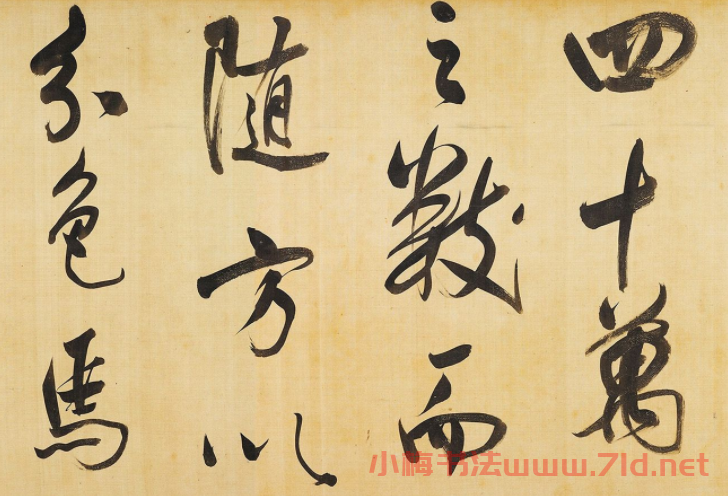 四十萬
之數而
隨方以
分色馬
小梅书法www.7ld.net